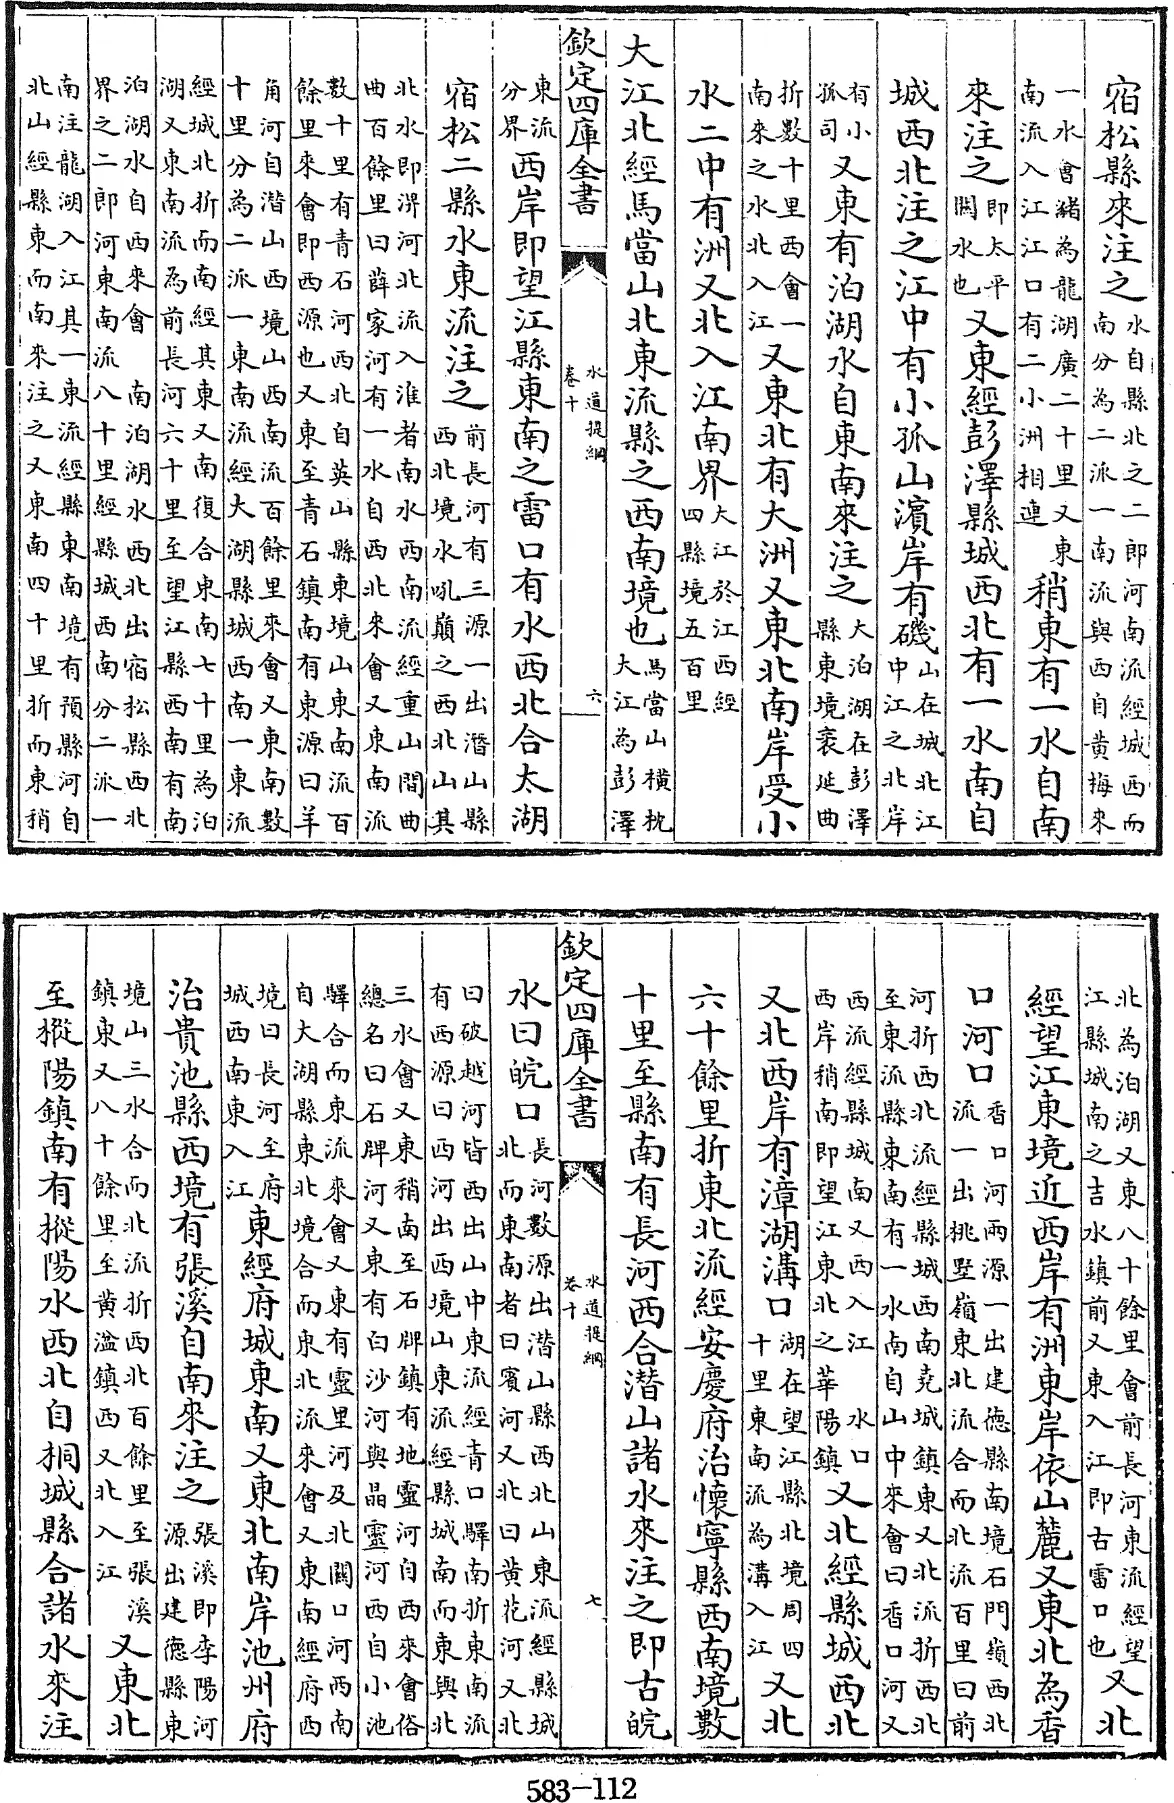 宿松縣來注之水自縣北之二郎河南流經城西而南分為二派一南流與西自黄梅來
一水會豬為龍湖廣二十里又東南流入江江口有二小洲相連稍東有一水自南
來注之即太平闗水也又東經彭澤縣城西北有一水南自
城西北注之江中有小孤山濱岸有磯山在城北江中江之北岸
有小孤司又東有泊湖水自東南來注之大泊湖在彭澤縣東境袤延曲
折數十里西會一南來之水北入江又東北有大洲又東北南岸受小
水二中有洲又北入江南界大江於江西經四縣境五百里
大江北經馬當山北東流縣之西南境也馬當山横枕大江為彭澤
欽定四庫全書
水道提綱
卷十
六
東流分界西岸即望江縣東南之雷口有水西北合太湖
宿松二縣水東流注之前長河有三源一出潛山縣西北境水吼巔之西北山其
北水即淠河北流入淮者南水西南流經重山間曲曲百餘里曰薛家河有一水自西北來會又東南流
數十里有青石河西北自英山縣東境山東南流百餘里來會即西源也又東至青石鎮南有東源曰羊
角河自潜山西境山西南流百餘里來會又東南數十里分為二派一東南流經大湖縣城西南一東流
經城北折而南經其東又南復合東南七十里為泊湖又東南流為前長河六十里至望江縣西南有南
泊湖水自西來會 南泊湖水西北出宿松縣西北界之二郎河東南流八十里經縣城西南分二派一
南注龍湖入江其一東流經縣東南境有預縣河自北山經縣東而南來注之又東南四十里折而東稍
北為泊湖又東八十餘里會前長河東流經望江縣城南之吉水鎮前又東入江即古雷口也又北
經望江東境近西岸有洲東岸依山麓又東北為香
口河口香口河兩源一出建德縣南境石門嶺西北流一出桃墅嶺東北流合而北流百里曰前
河折西北流經縣城西南堯城鎮東又北流折西北至東流縣東南有一水南自山中來會曰香口河又
西流經縣城南又西入江 水口西岸稍南即望江東北之華陽鎮又北經縣城西北
又北西岸有漳湖溝口湖在望江縣北境周四十里東南流為溝入江又北
六十餘里折東北流經安慶府治懷寧縣西南境數
十里至縣南有長河西合潜山諸水來注之即古皖
欽定四庫全書
水道提綱
卷十
七
水曰皖口長河數源出潜山縣西北山東流經縣城北而東南者曰賓河又北曰黄花河又北
曰破越河皆西出山中東流經青口驛南折東南流有西源曰西河出西境山東流經縣城南而東與北
三水會又東稍南至石牌鎮有地靈河自西來會俗總名曰石牌河又東有白沙河與晶靈河西自小池
驛合而東流來會又東有靈里河及北闗口河西南自大湖縣東北境合而東北流來會又東南經府西
境曰長河至府城西南東入江東經府城東南又東北南岸池州府
治貴池縣西境有張溪自南來注之張溪即李陽河源出建德縣東
境山三水合而北流折西北百餘里至張溪鎮東又八十餘里至黄湓鎮西又北入江又東北
至樅陽鎮南有樅陽水西北自桐城縣合諸水來注
583-112